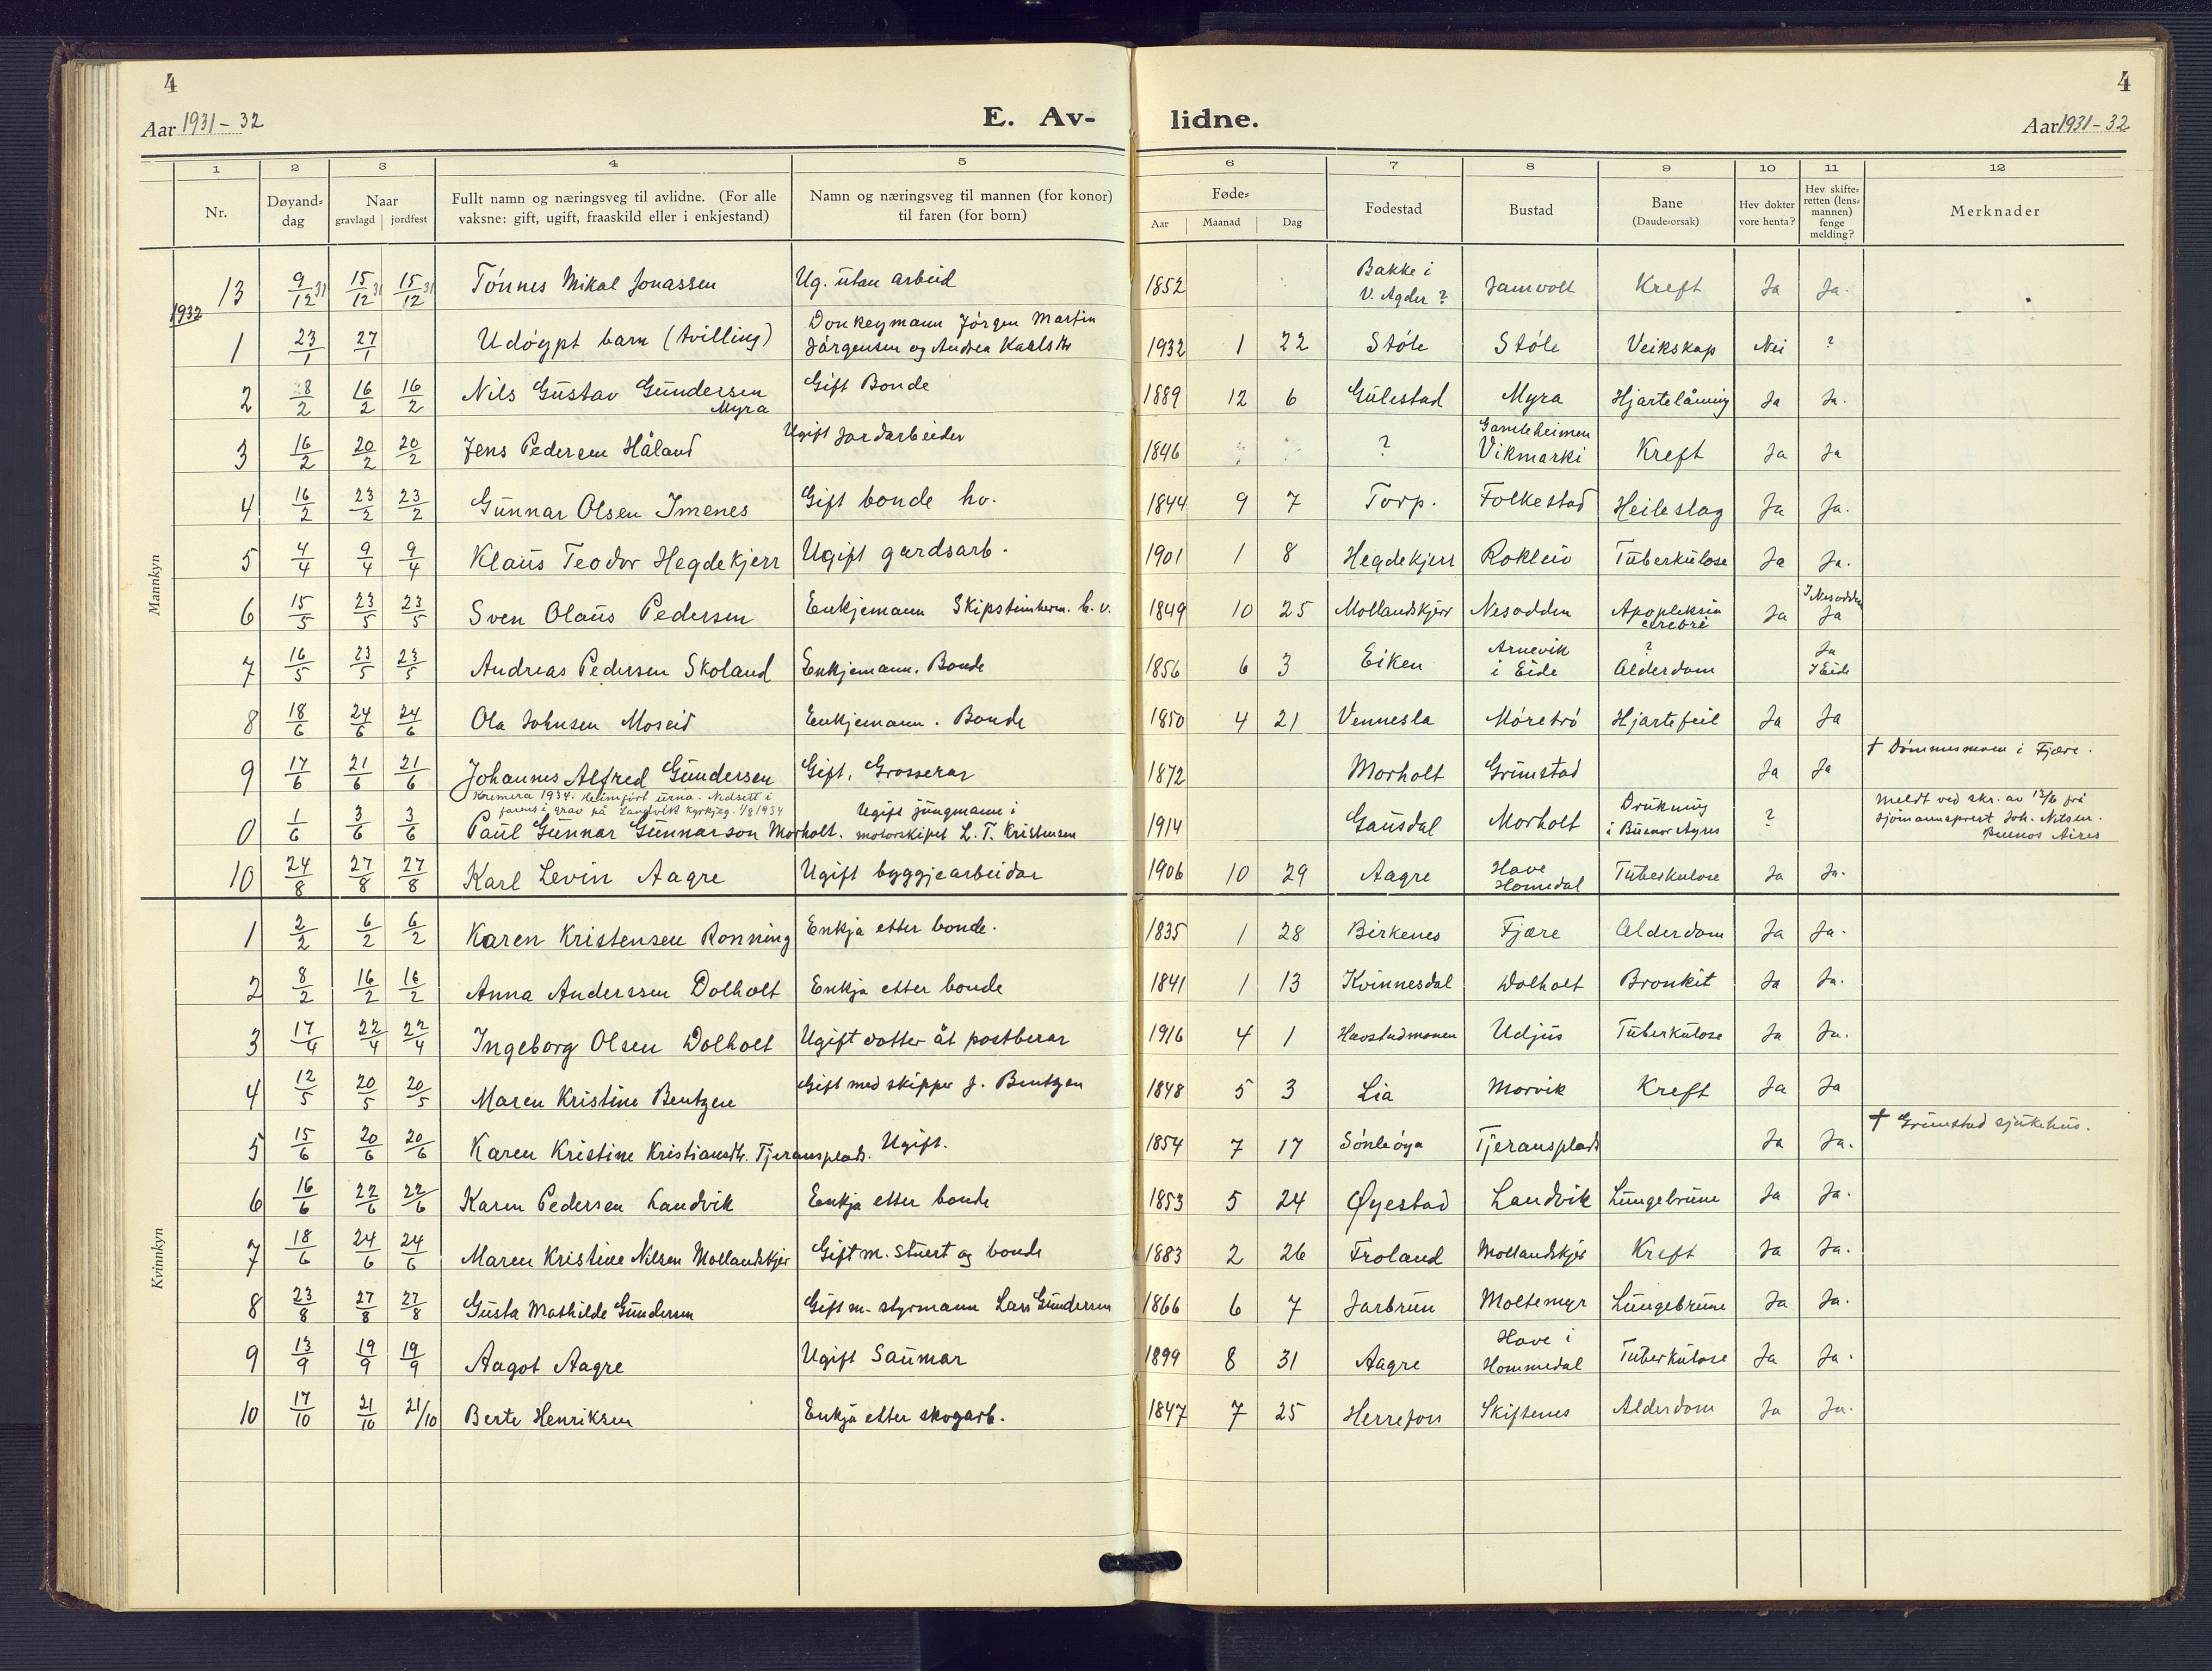 4
4
Aar 1931-32
E. Av- lidne.
Aar 1931-32
1 2 3 4 5 6 7 8 9 10 11 12
Nr.
Døyand-dag
Naar
gravlagd jordfest
Fullt namn og næringsveg til avlidne. (For alle
vaksne: gift, ugift, fraaskild eller i enkjestand)
Namn og næringsveg til mannen (for konor)
til faren (for born)
Føde-
Aar Maanad Dag
Fødestad
Bustad
Bane
(Daude-orsak)
Hev dokter
vore henta?
Hev skifte-
retten (lens-
mannen)
fenge
melding?
Merknader
Mannkyn
13 9/12 31 15/12 31 15/12 31 Tønnes Mikal Jonassen Ug. utan arbeid 1852 Bakke i V. Agder ? Jamvolt Kreft Ja Ja.
1932
1 23/1 27/1 Udøypt barn (tvilling) Donkeymann Jørgen Martin Jørgensen og Andrea Karlsdtr 1932 1 22 Støle Støle Veikskap Nei ?
2 8/2 16/2 16/2 Nils Gustav Gundersen Myra Gift Bonde 1889 12 6 Gulestad Myra Hjartelåming Ja Ja.
3 16/2 20/2 20/2 Jens Pedersen Håland Ugift Jordarbeider 1846 ? Gamleheimen Vikmarki Kreft Ja Ja
4 16/2 23/2 23/2 Gunnar Olsen Imenes Gift bonde ho. 1844 9 7 Torp. Folkestad Heileslag Ja Ja.
5 4/4 9/4 9/4 Klaus Teodor Hegdekjerr Ugift gardsarb. 1901 1 8 Hegdekjerr Rokleiv Tuberkulose Ja Ja.
6 15/5 23/5 23/5 Sven Olaus Pedersen Enkjemann Skipstimherm. h. v. 1849 10 25 Mollandskjerr Nesodden Apopleksia cerebri Ja I Nesodden Ja
7 16/5 23/5 23/5 Andreas Pedersen Skoland Enkjemann. Bonde 1856 6 3 Eiken Arnevik i Eide ? Alderdom Ja I Eide
8 18/6 24/6 24/6 Ola Johnsen Moseid Enkjemann. Bonde 1850 4 21 Vennesla Møretrø Hjartefeil Ja Ja
9 17/6 21/6 21/6 Johannes Alfred Gundersen Gift, Grosserar 1872 Morholt Grimstad Ja Ja † Dømmesmoen i Fjære.
Kremera 1934. Heimført urna. Nedsett i
farens grav på Landvik kyrkjeg. 1/8 1934
0 1/6 3/6 3/6 Paul Gunnar Gunnarson Morholt. Ugift jungmann i motorskipet L. T. Kristensen 1914 Gausdal Morholt Drukning i Buenos Ayres ? Meldt ved skr. av 13/6 frå sjømannsprest Joh. Nilsen. Buenos Aires
10 24/8 27/8 27/8 Karl Levin Aagre Ugift byggjearbeidar 1906 10 29 Aagre Have Homedal Tuberkulose Ja Ja.
Kvinnkyn
1 2/2 6/2 6/2 Karen Kristensen Rønning Enkja etter bonde. 1835 1 28 Birkenes Fjære Alderdom Ja Ja.
2 8/2 16/2 16/2 Anna Anderssen Dolholt Enkja etter bonde 1841 1 13 Kvinnesdal Dolholt Bronkit Ja Ja.
3 17/4 22/4 22/4 Ingeborg Olsen Dolholt Ugift dotter åt postberar 1916 4 1 Havstadmonen Udjus Tuberkulose Ja Ja.
4 12/5 20/5 20/5 Maren Kristine Bentzen Gift med skipper J. Bentzen 1848 5 3 Lia Morvik Kreft Ja Ja
5 15/6 20/6 20/6 Karen Kristine Kristiansdtr. Tjeransplads. Ugift. 1854 7 17 Sønleøya Tjeransplads Ja Ja. † Grimstad sjukehus.
6 16/6 22/6 22/6 Karen Pedersen Landvik Enkja etter bonde 1853 5 24 Øyestad Landvik Lungebrune Ja Ja.
7 18/6 24/6 24/6 Maren Kristine Nilsen Mollandskjer Gift m. stuert og bonde 1883 2 26 Froland Mollandskjer Kreft Ja Ja.
8 23/8 27/8 27/8 Gusta Mathilde Gundersen Gift m. styrmann Lars Gundersen 1866 6 7 Jarbrun Moltemyr Lungebrune Ja Ja.
9 13/9 19/9 19/9 Aagot Aagre Ugift Saumar 1899 8 31 Aagre Have i Hommedal Tuberkulose Ja Ja.
10 17/10 21/10 21/10 Berte Henriksen Enkja etter skogarb. 1847 7 25 Herrefoss Skiftenes Alderdom Ja Ja.